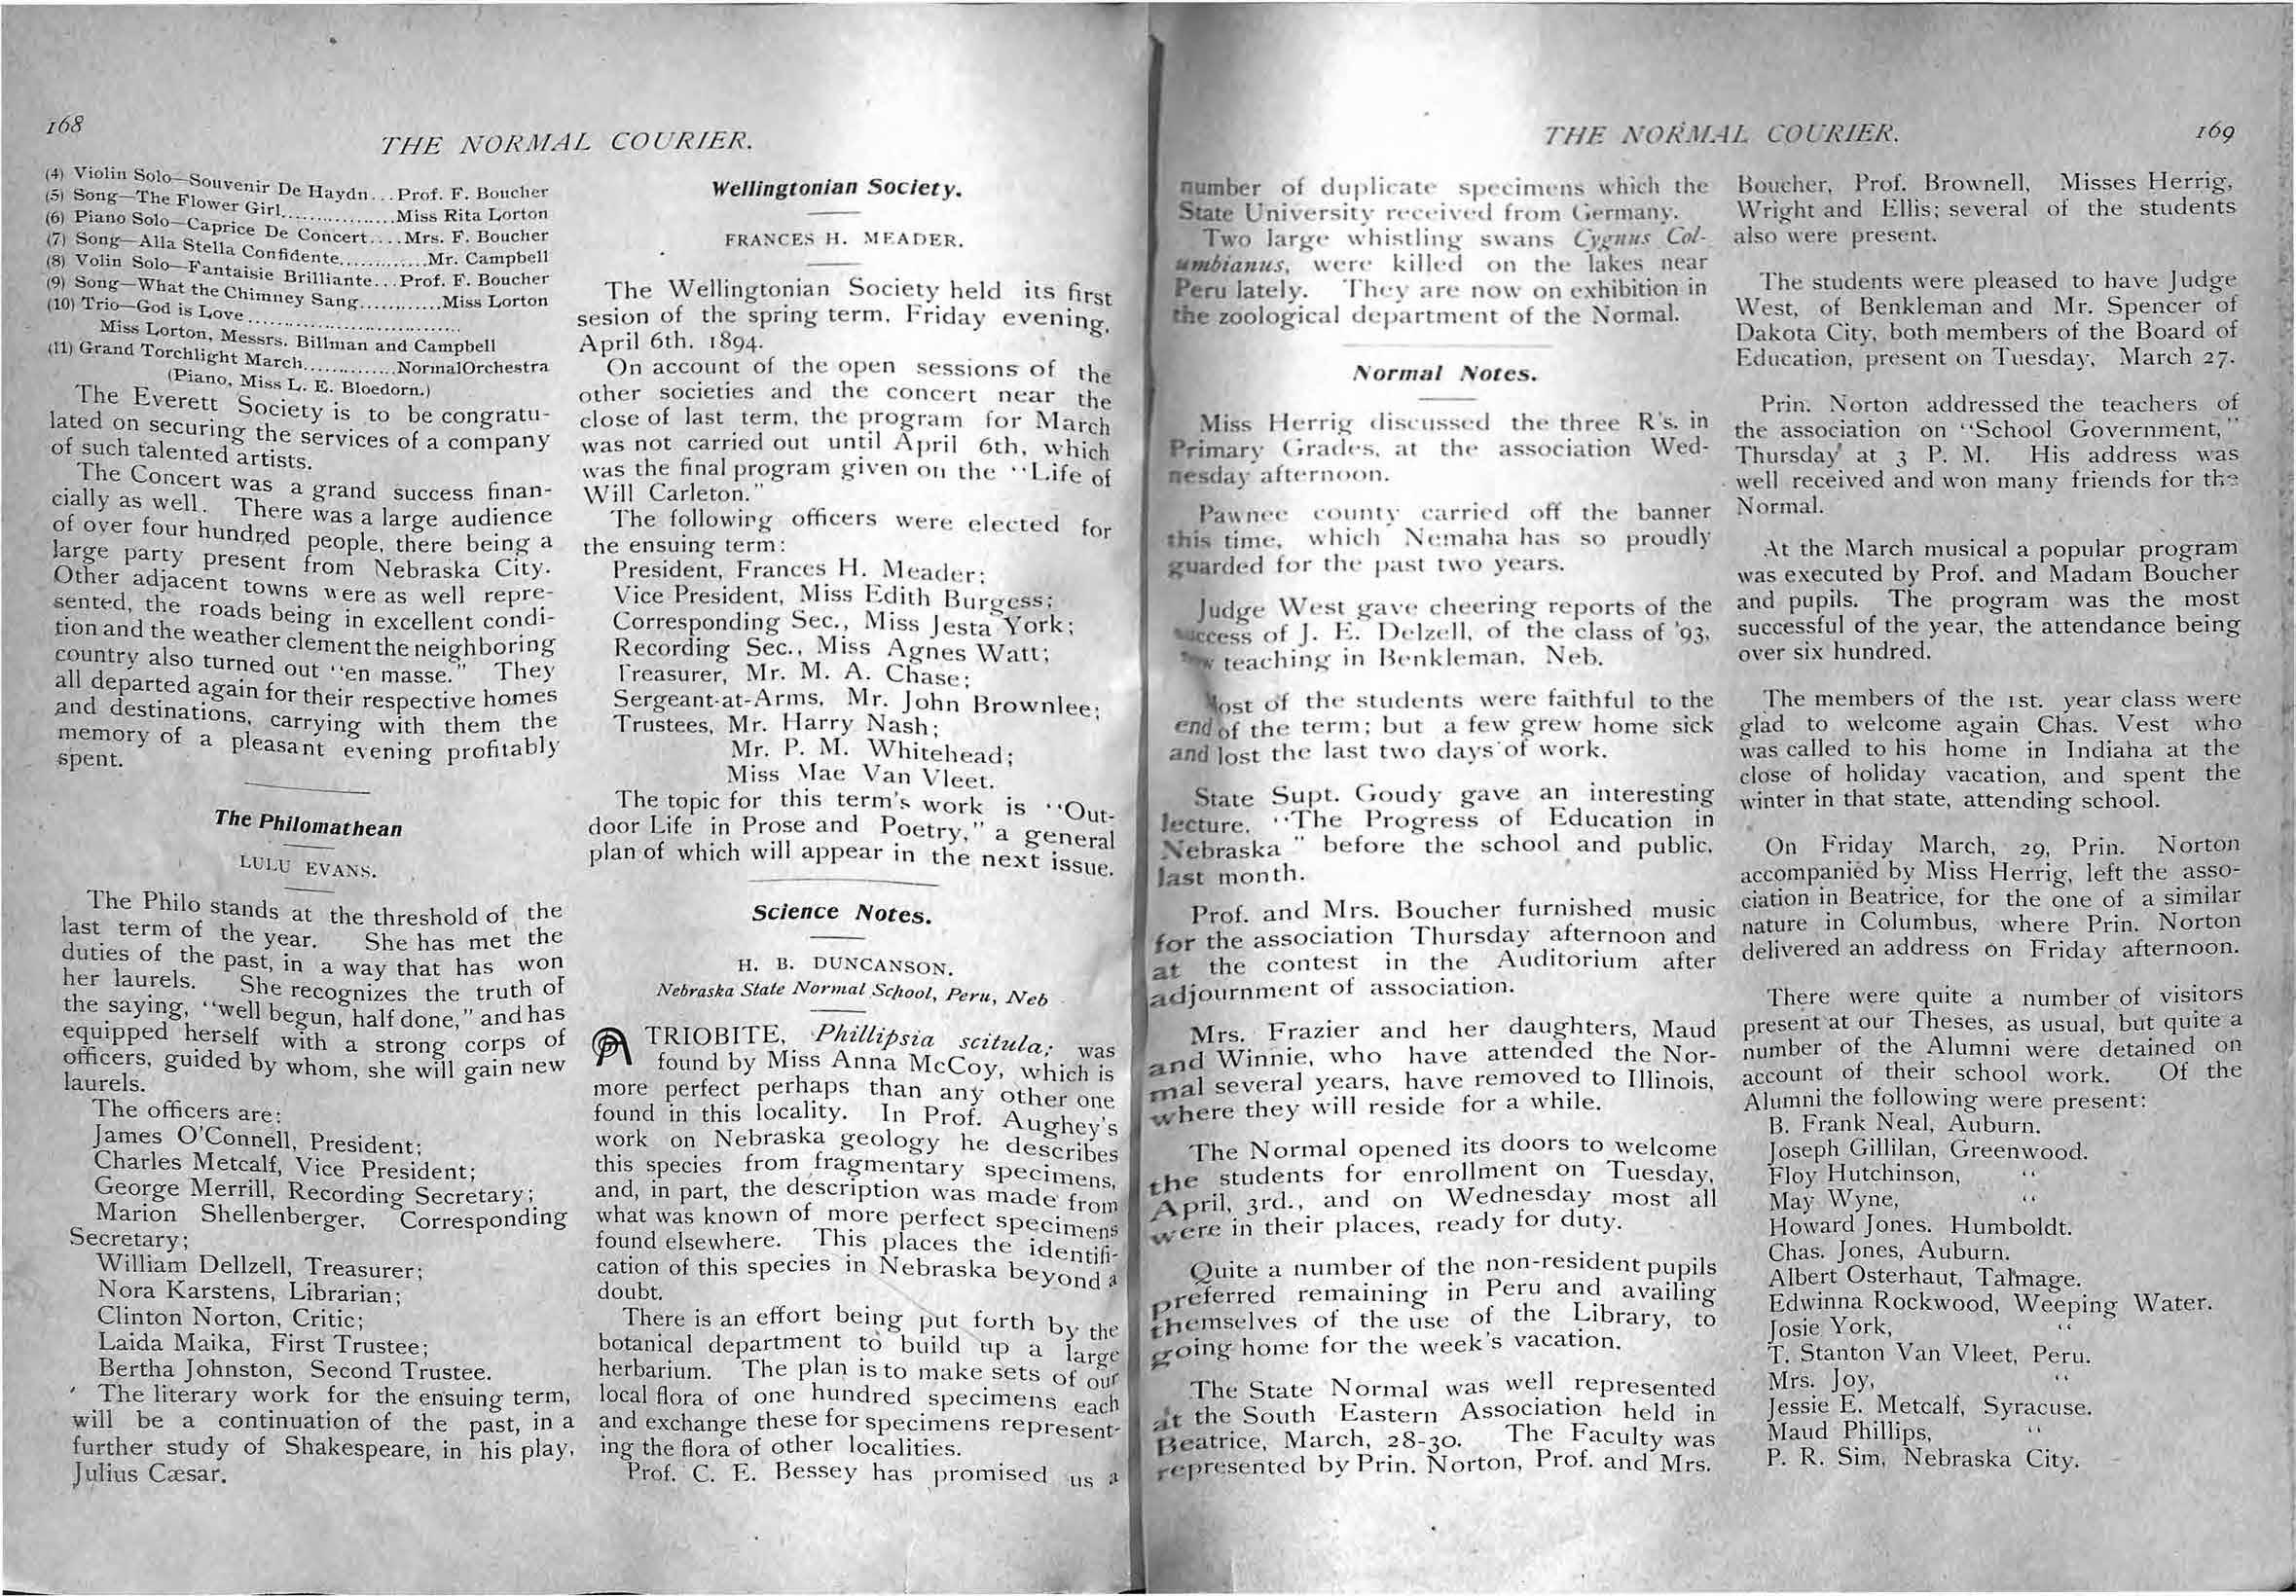 168
THE NORMAL COURIER.
(4) Violin Solo—Souvenir De Haydn...Prof. F. Boucher
(5) Song—The Flower Girl.................Miss Rita Lorton
(6) Piano Solo—Caprice De Concert....Mrs. F. Boucher
(7) Song—Alla Stella Confidente.............Mr. Campbell
(8) Volin Solo—Fantaisie Brilliante...Prof. F. Boucher
(9) Song—What the Chimney Sang............Miss Lorton
(10) Trio—God is Love................................
Miss Lorton, Messrs. Billman and Campbell
(11) Grand Torchlight March..............NormalOrchestra
(Piano, Miss L. E. Bloedorn.)
The Everett Society is to be congratu-
lated on securing the services of a company
of such talented artists.
The Concert was a grand success finan-
cially as well. There was a large audience
of over four hundred people, there being a
large party present from Nebraska City.
Other adjacent towns were as well repre-
sented, the roads being in excellent condi-
tion and the weather clement the neighboring
country also turned out "en masse." They
all departed again for their respective homes
and destinations, carrying with them the
memory of a pleasant evening profitably
spent.
The Philomathean
LULU EVANS.
The Philo stands at the threshold of the
last term of the year. She has met the
duties of the past, in a way that has won
her laurels. She recognizes the truth of
the saying, "well begun, half done," and has
equipped herself with a strong corps of
officers, guided by whom, she will gain new
laurels.
The officers are:
James O'Connell, President;
Charles Metcalf, Vice President;
George Merrill, Recording Secretary;
Marion Shellenberger, Corresponding
Secretary;
William Dellzell, Treasurer;
Nora Karstens, Librarian;
Clinton Norton, Critic;
Laida Maika, First Trustee;
Bertha Johnston, Second Trustee.
The literary work for the ensuing term,
will be a continuation of the past, in a
further study of Shakespeare, in his play,
Julius Cæsar.
Wellingtonian Society.
FRANCES H. MEADER.
The Wellingtonian Society held its first
sesion of the spring term, Friday evening,
April 6th. 1894.
On account of the open sessions of the
other societies and the concert near the
close of last term, the program for March
was not carried out until April 6th, which
was the final program given on the "Life of
Will Carleton."
The following officers were elected for
the ensuing term:
President, Frances H. Meader;
Vice President, Miss Edith Burgess;
Corresponding Sec., Miss Jesta York;
Recording Sec., Miss Agnes Watt;
Treasurer, Mr. M. A. Chase;
Sergeant-at-Arms, Mr. John Brownlee;
Trustees, Mr. Harry Nash;
Mr. P. M. Whitehead;
Miss Mae Van Vleet.
The topic for this term's work is "Out-
door Life in Prose and Poetry," a general
plan of which will appear in the next issue.
Science Notes.
H. B. DUNCANSON.
Nebraska State Normal School, Peru, Neb
A TRIOBITE, Phillipsia scitula; was
found by Miss Anna McCoy, which is
more perfect perhaps than any other one
found in this locality. In Prof. Aughey's
work on Nebraska geology he describes
this species from fragmentary specimens,
and, in part, the description was made from
what was known of more perfect specimens
found elsewhere. This places the identifi-
cation of this species in Nebraska beyond a
doubt.
There is an effort being put forth by the
botanical department to build up a large
herbarium. The plan is to make sets of our
local flora of one hundred specimens each
and exchange these for specimens represent-
ing the flora of other localities.
Prof. C. E. Bessey has promised us a
THE NORMAL COURIER.
169
number of duplicate specimens which the
State University received from Germany.
Two large whistling swans Cygnus Col-
umbianus, were killed on the lakes near
Peru lately. They are now on exhibition in
the zoological department of the Normal.
Normal Notes.
Miss Herrig discussed the three R's. in
Primary Grades, at the association Wed-
nesday afternoon.
Pawnee county carried off the banner
this time, which Nemaha has so proudly
guarded for the past two years.
Judge West gave cheering reports of the
success of J. E. Delzell, of the class of '93,
now teaching in Benkleman, Neb.
Most of the students were faithful to the
end of the term; but a few grew home sick
and lost the last two days of work.
State Supt. Goudy gave an interesting
lecture. "The Progress of Education in
Nebraska" before the school and public,
last month.
Prof. and Mrs. Boucher furnished music
for the association Thursday afternoon and
at the contest in the Auditorium after
adjournment of association.
Mrs. Frazier and her daughters, Maud
and Winnie, who have attended the Nor-
mal several years, have removed to Illinois,
where they will reside for a while.
The Normal opened its doors to welcome
the students for enrollment on Tuesday,
April, 3rd., and on Wednesday most all
were in their places, ready for duty.
Quite a number of the non-resident pupils
preferred remaining in Peru and availing
themselves of the use of the Library, to
going home for the week's vacation.
The State Normal was well represented
at the South Eastern Association held in
Beatrice, March, 28-30. The Faculty was
represented by Prin. Norton, Prof. and Mrs.
Boucher, Prof. Brownell, Misses Herrig,
Wright and Ellis; several of the students
also were present.
The students were pleased to have Judge
West, of Benkleman and Mr. Spencer of
Dakota City, both members of the Board of
Education, present on Tuesday, March 27.
Prin. Norton addressed the teachers of
the association on "School Government,"
Thursday at 3 P. M. His address was
well received and won many friends for the
Normal.
At the March musical a popular program
was executed by Prof. and Madam Boucher
and pupils. The program was the most
successful of the year, the attendance being
over six hundred.
The members of the 1st. year class were
glad to welcome again Chas. Vest who
was called to his home in Indiaha at the
close of holiday vacation, and spent the
winter in that state, attending school.
On Friday March, 29, Prin. Norton
accompanied by Miss Herrig, left the asso-
ciation in Beatrice, for the one of a similar
nature in Columbus, where Prin. Norton
delivered an address on Friday afternoon.
There were quite a number of visitors
present at our Theses, as usual, but quite a
number of the Alumni were detained on
account of their school work. Of the
Alumni the following were present:
B. Frank Neal, Auburn.
Joseph Gillilan, Greenwood.
Floy Hutchinson, "
May Wyne, "
Howard Jones. Humboldt.
Chas. Jones, Auburn.
Albert Osterhaut, Talmage.
Edwinna Rockwood, Weeping Water.
Josie York, "
T. Stanton Van Vleet, Peru.
Mrs. Joy, "
Jessie E. Metcalf, Syracuse.
Maud Phillips, "
P. R. Sim, Nebraska City.